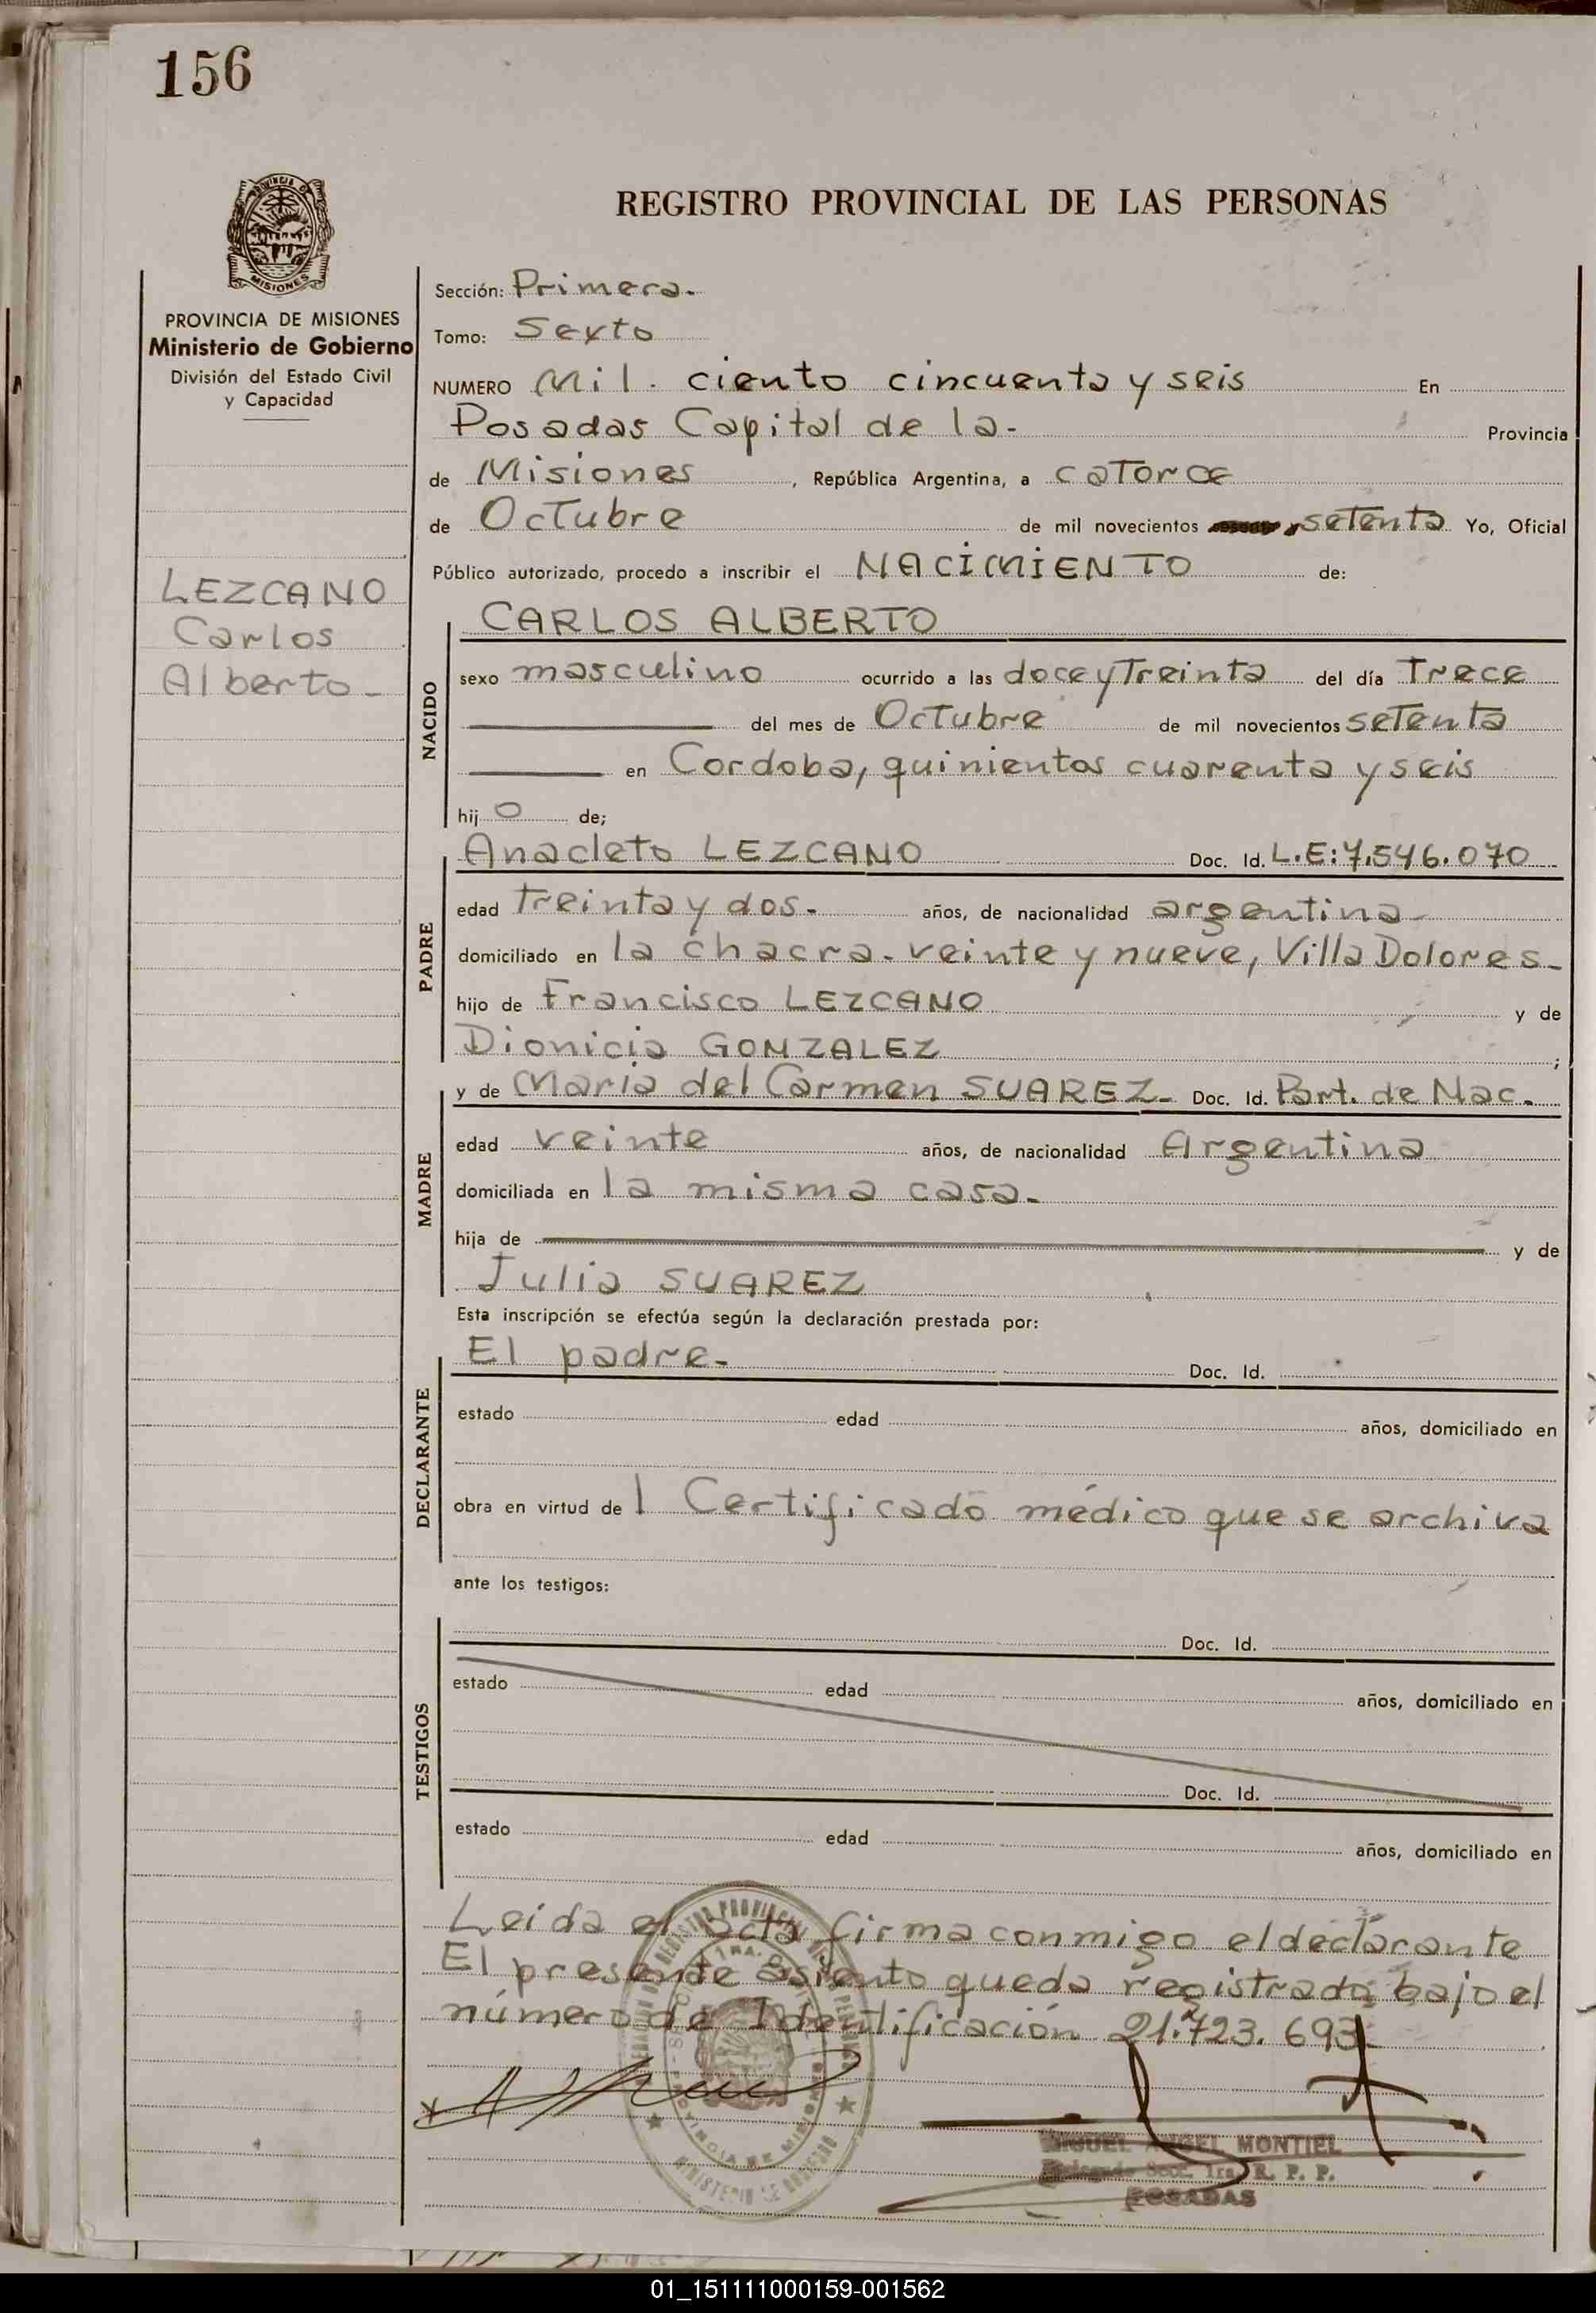 156
PROVINCIA DE
MISIONES
REGISTRO PROVINCIAL DE LAS PERSONAS
PROVINCIA DE MISIONES
Ministerio de Gobierno
División del Estado Civil
y Capacidad
LEZCANO
Carlos
Alberto-
Sección: Primera.
Tomo: Sexto
NUMERO Mil. ciento cincuenta y seis En
Posadas Capital de la- Provincia
de Misiones, República Argentina, a catorce
de Octubre de mil novecientos setenta Yo, Oficial
Público autorizado, procedo a inscribir el NACIMIENTO de:
NACIDO
CARLOS ALBERTO
sexo masculino ocurrido a las doce y Treinta del día Trece
del mes de Octubre de mil novecientos setenta
en Cordoba, quinientos cuarenta y seis
hijo de;
PADRE
Anacleto LEZCANO Doc. Id. L.E:7.546.070
edad treinta y dos- años, de nacionalidad argentina-
domiciliado en la chacra. veinte y nueve, Villa Dolores-
hijo de Francisco LEZCANO y de
Dionicia GONZALEZ ;
MADRE
y de Maria del Carmen SUAREZ- Doc. Id. Part. de Nac.
edad veinte años, de nacionalidad Argentina
domiciliada en la misma casa-
hija de y de
Julia SUAREZ
Esta inscripción se efectúa según la declaración prestada por:
DECLARANTE
El padre- Doc. Id.
estado edad años, domiciliado en
obra en virtud de l Certificado médico que se archiva
ante los testigos:
TESTIGOS
Doc. Id.
estado edad años, domiciliado en
Doc. Id.
estado edad años, domiciliado en
Leida el acta firma conmigo el declarante
El presente asiento queda registrado bajo el
número de Identificación 21.723.693
MIGUEL ANGEL MONTIEL
Delegado Secc. 1ra. R. P. P.
POSADAS
01_151111000159-001562